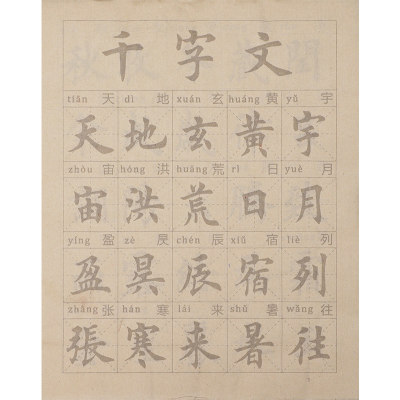 千字文
tiān 天 dì 地 xuán 玄 huáng 黄 yǔ 宇
天地玄黃宇
zhòu 宙 hóng 洪 huāng 荒 rì 日 yuè 月
宙洪荒日月
yíng 盈 zè 昃 chén 辰 xiǔ 宿 liè 列
盈昃辰宿列
zhāng 张 hán 寒 lái 来 shǔ 暑 wǎng 往
張寒来暑往